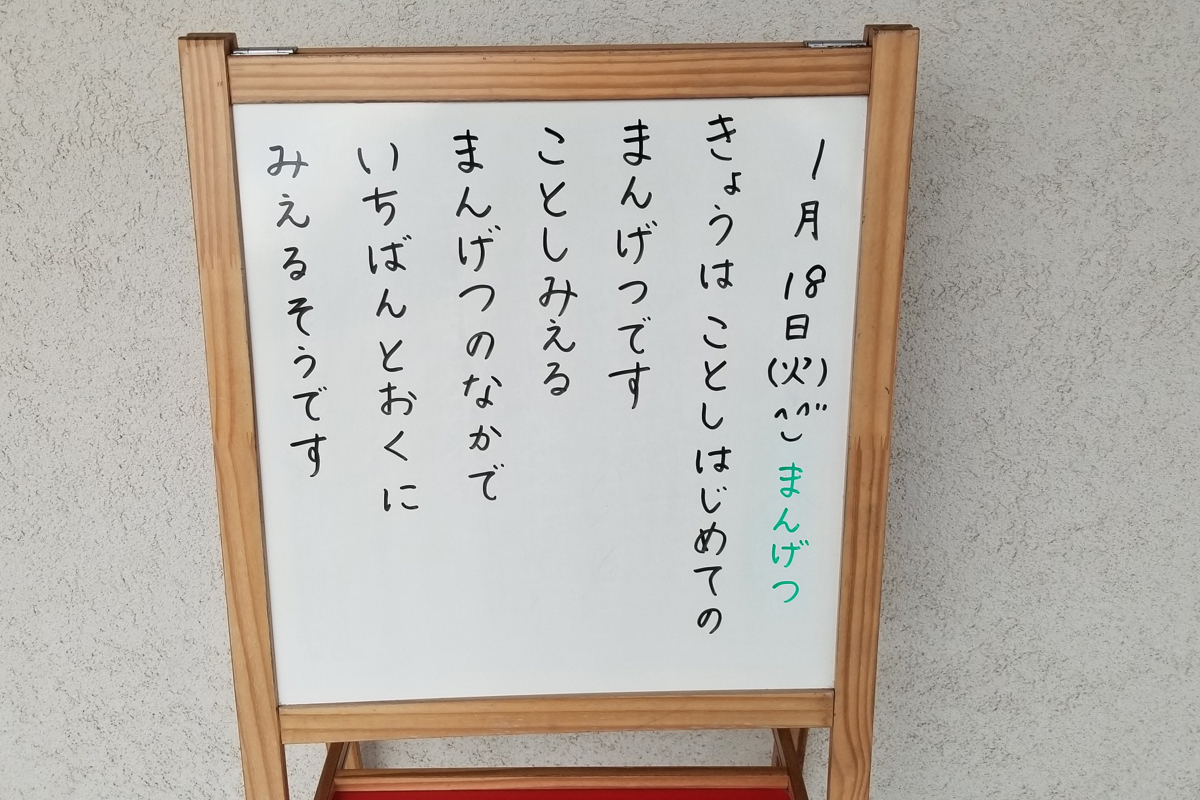 1月18日(火) まんげつ
きょうは ことしはじめての
まんげつです
ことしみえる
まんげつのなかで
いちばんとおくに
みえるそうです